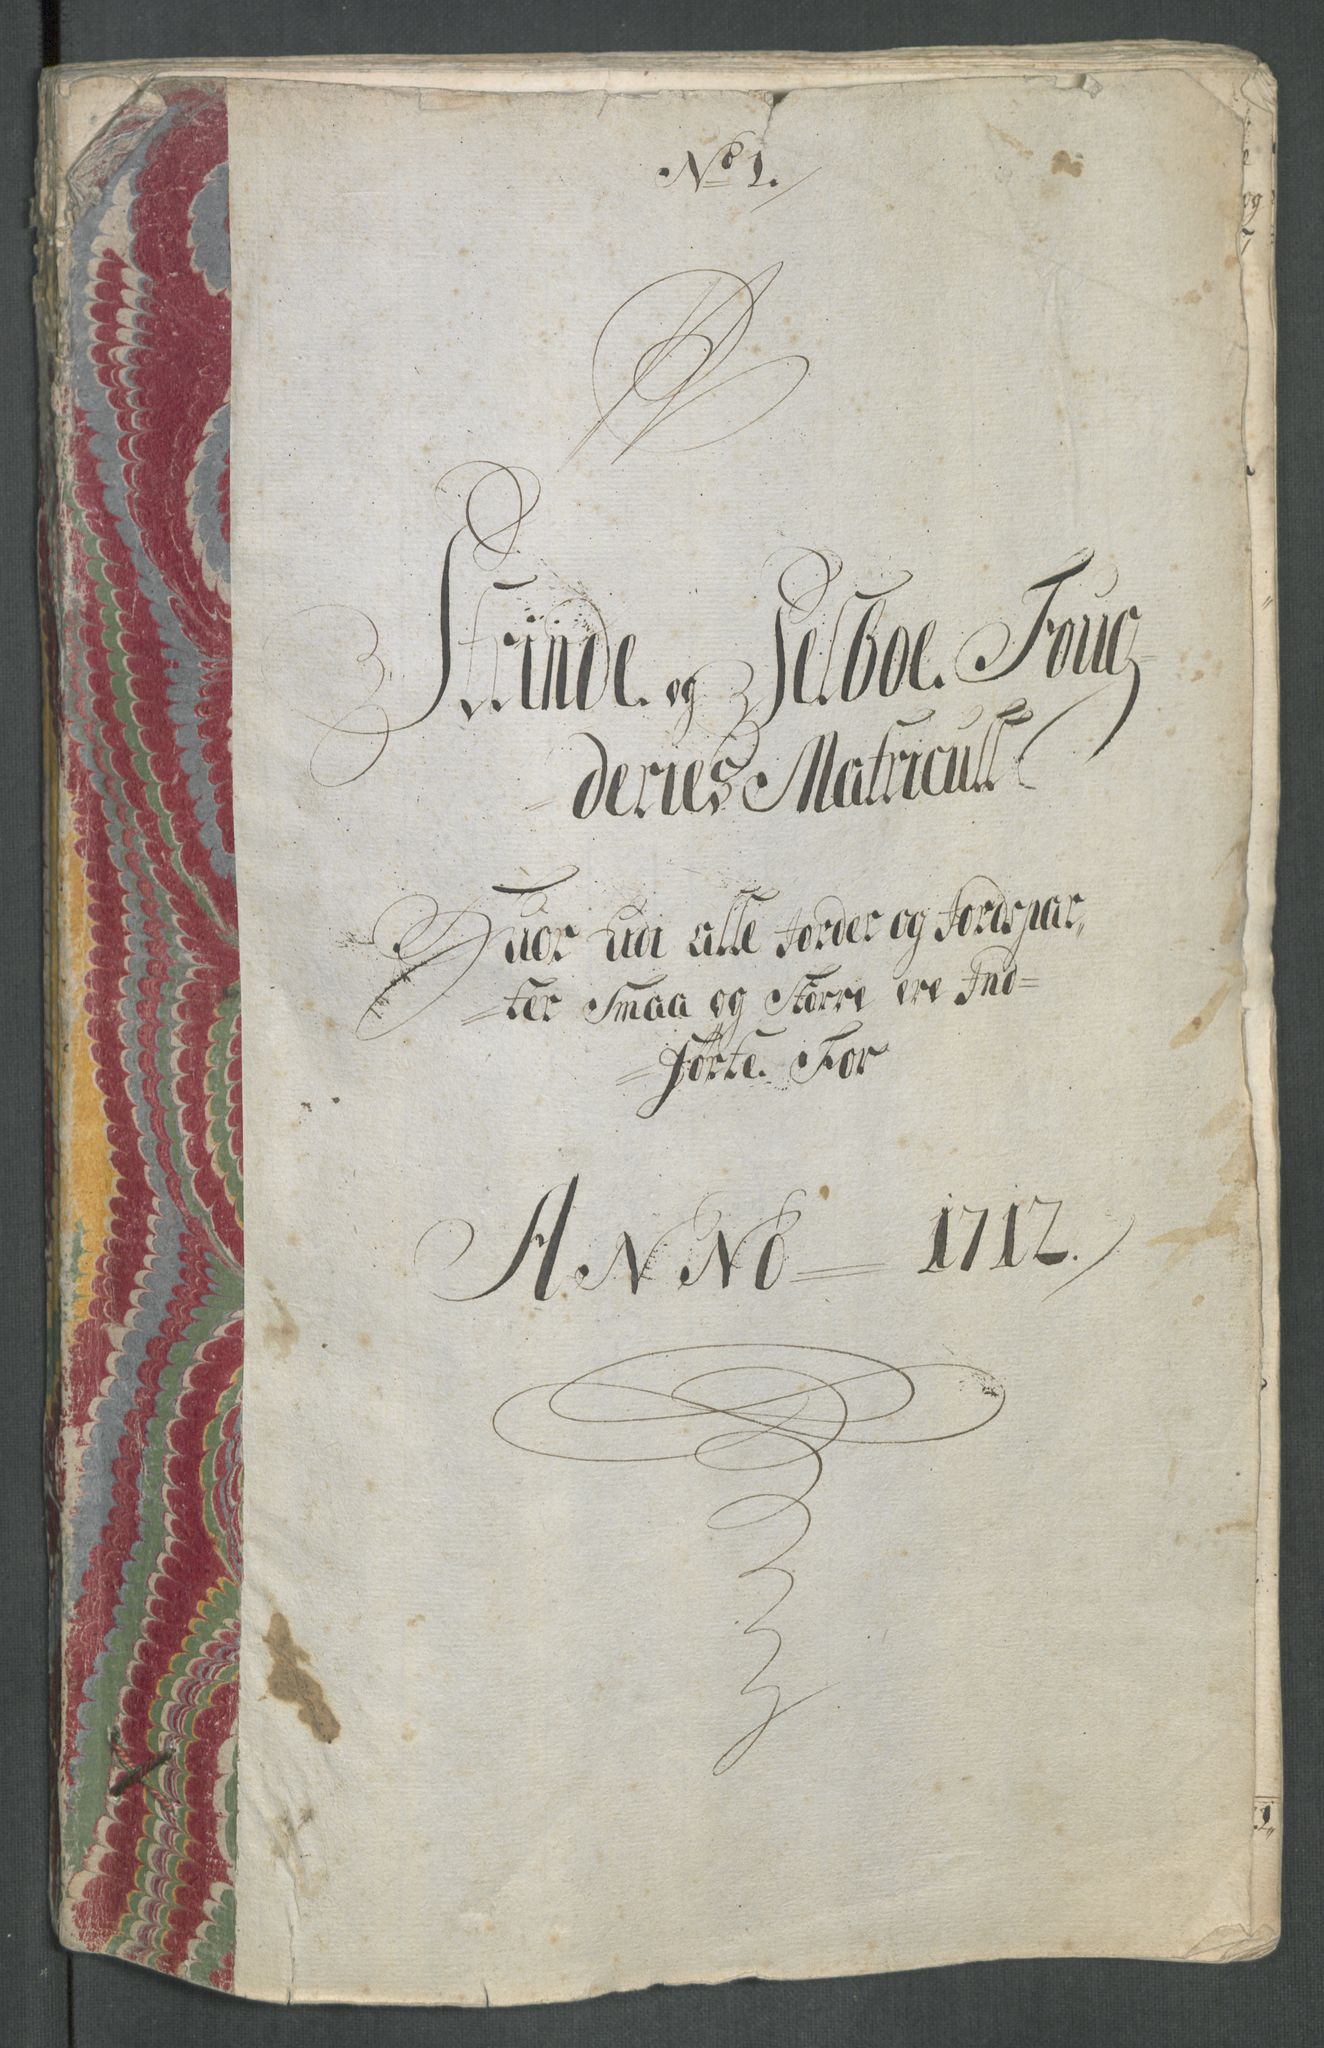 No 1.
Strinde og Selboe Foug-
deries Matricull
Huor udi alle Jorder og Jordspar,,
ter Smaa og Større ere Ind-
førte. For
ANNO 1712.